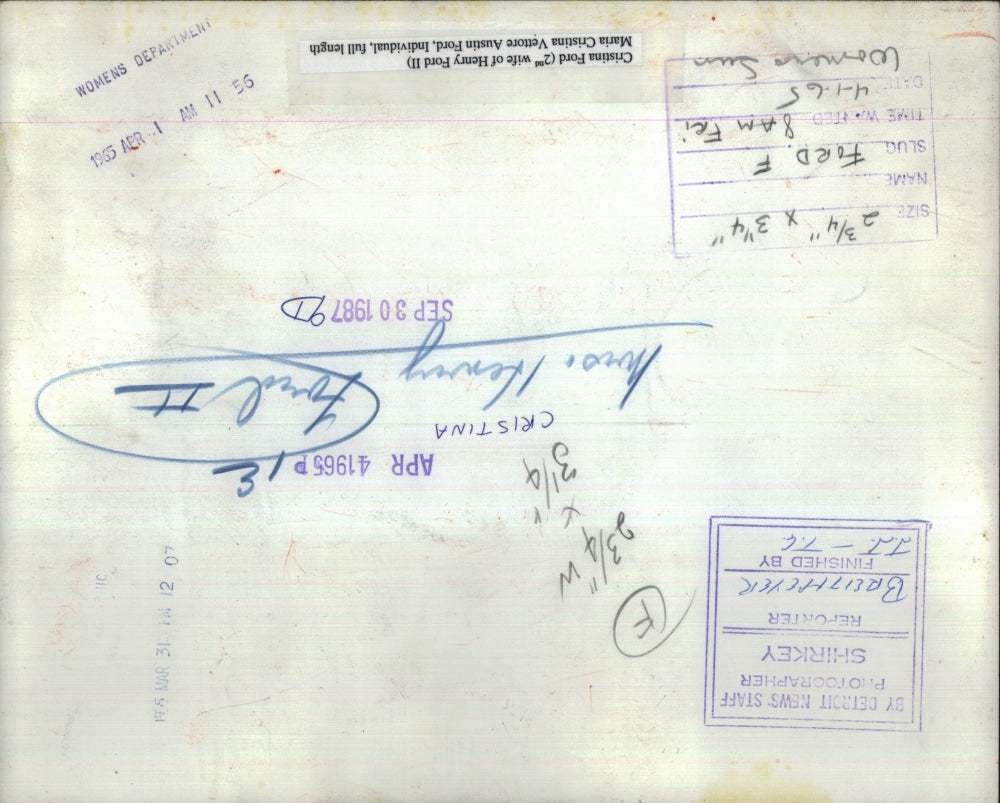 WOMENS DEPARTMENT
1965 APR. 1 AM 11 56
Cristina Ford (2nd wife of Henry Ford II)
Maria Cristina Vettore Austin Ford, Individual, full length
SIZE 2 3/4" x 3 1/4"
NAME
SLUG FORD F
TIME WANTED 8 AM Fri
DATE 4-1-65
Womens Sun
SEP 30 1987
Mrs. Henry
Ford II
CRISTINA
APR 4 1965 P
1E
2 3/4" W
x
3 1/4"
F
MAR 31 PM 12 07
BY DETROIT NEWS STAFF
PHOTOGRAPHER
SHIRKEY
REPORTER
BREITMEYER
FINISHED BY